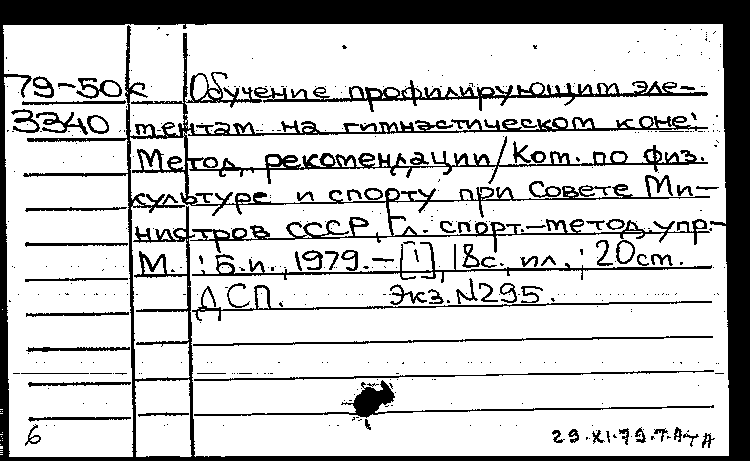 79-50к Обучение профилирующим эле-
3340 ментам на гимнастическом коне:
Метод. рекомендации/Ком. по физ.
культуре и спорту при Совете Ми-
нистров СССР, Гл. спорт.-метод. упр.-
М. : Б.и., 1979.-[1], 18с., ил., ; 20см.
ДСП. Экз.N295.
6 29.XI.79.